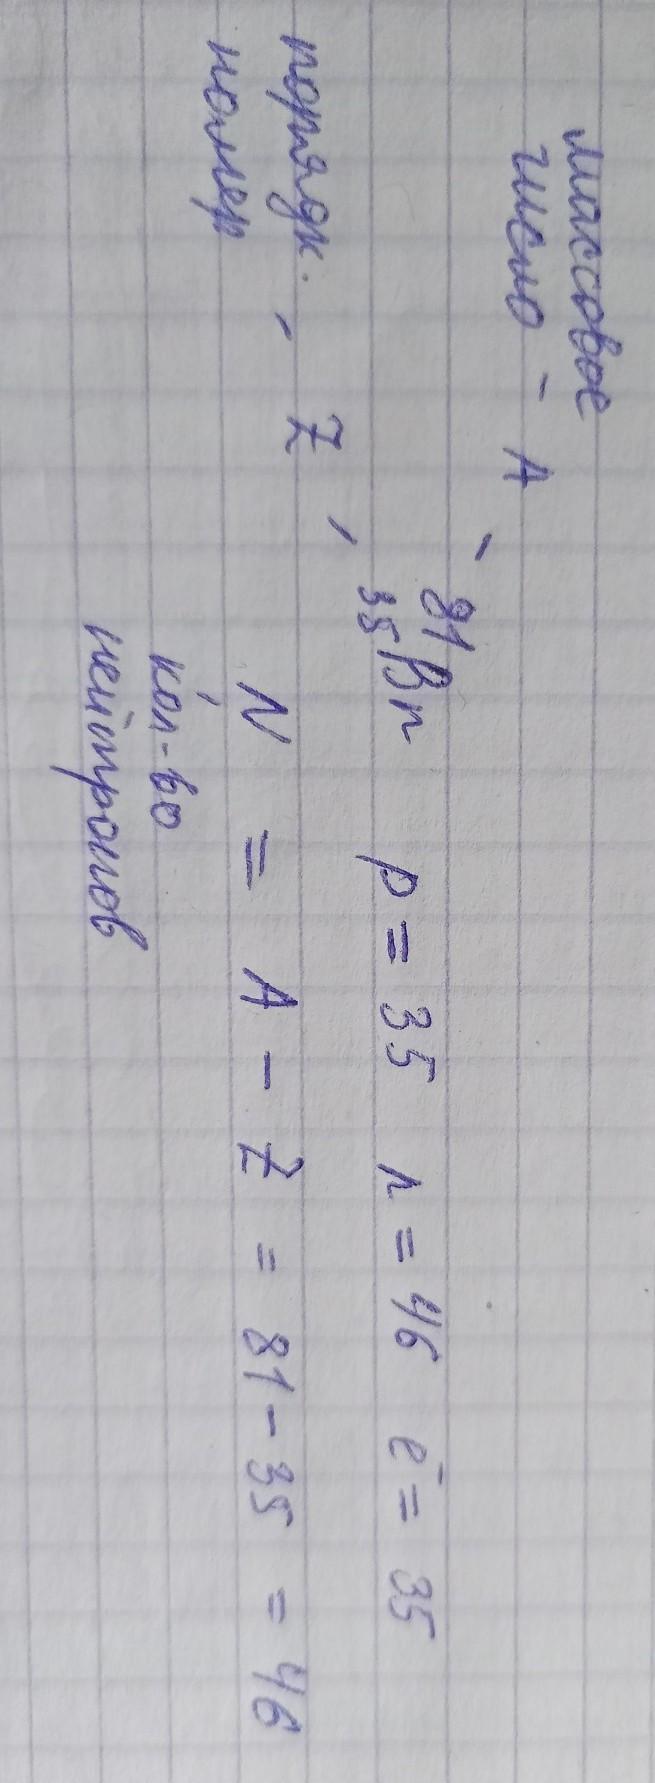 массовое
число - A
81
35 Br p = 35 n = 46 e⁻ = 35
порядк. - Z
номер
N = A - Z = 81 - 35 = 46
кол-во
нейтронов